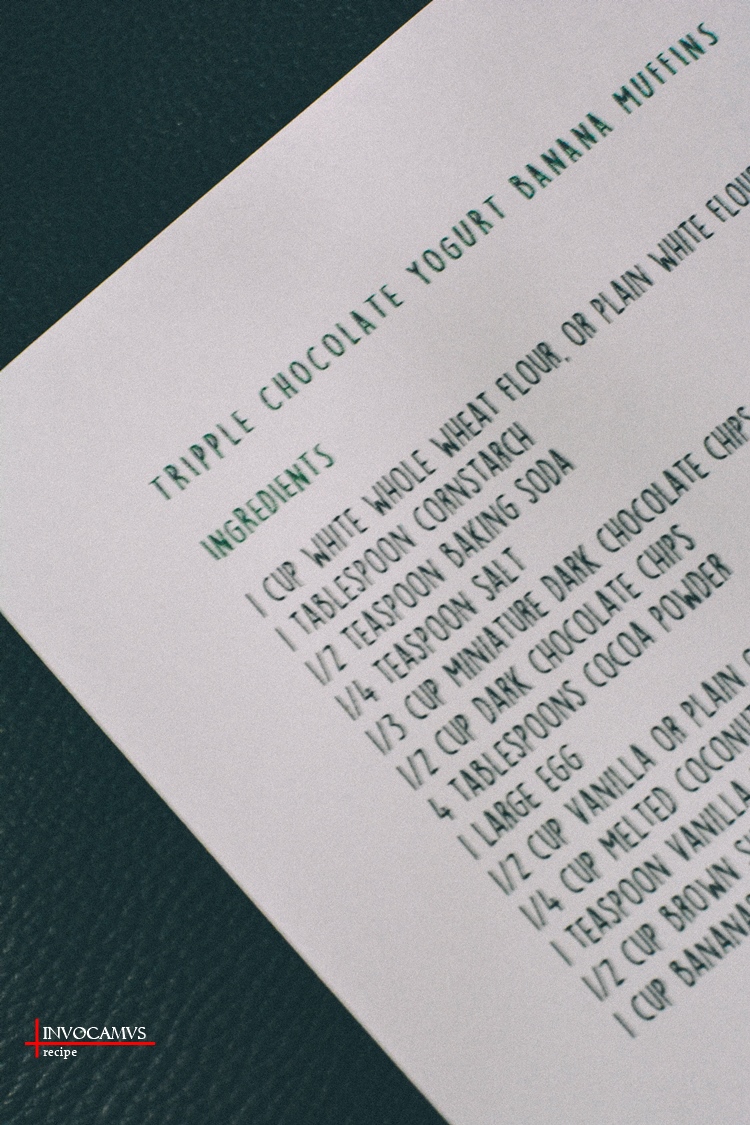 TRIPPLE CHOCOLATE YOGURT BANANA MUFFINS
INGREDIENTS
1 CUP WHITE WHOLE WHEAT FLOUR, OR PLAIN WHITE FLOUR
1 TABLESPOON CORNSTARCH
1/2 TEASPOON BAKING SODA
1/4 TEASPOON SALT
1/3 CUP MINIATURE DARK CHOCOLATE CHIPS
1/2 CUP DARK CHOCOLATE CHIPS
4 TABLESPOONS COCOA POWDER
1 LARGE EGG
1/2 CUP VANILLA OR PLAIN
1/4 CUP MELTED
1 TEASPOON VANILLA
1/2 CUP BROWN
1 CUP
INVOCAMVS
recipe